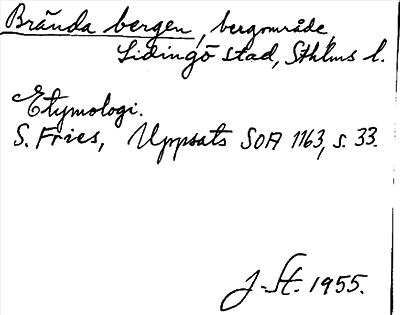 Brända bergen, bergområde,
Lidingö stad, Sthlms l.
Etymologi.
S. Fries, Uppsats SOA 1163, s. 33.
J. St. 1955.